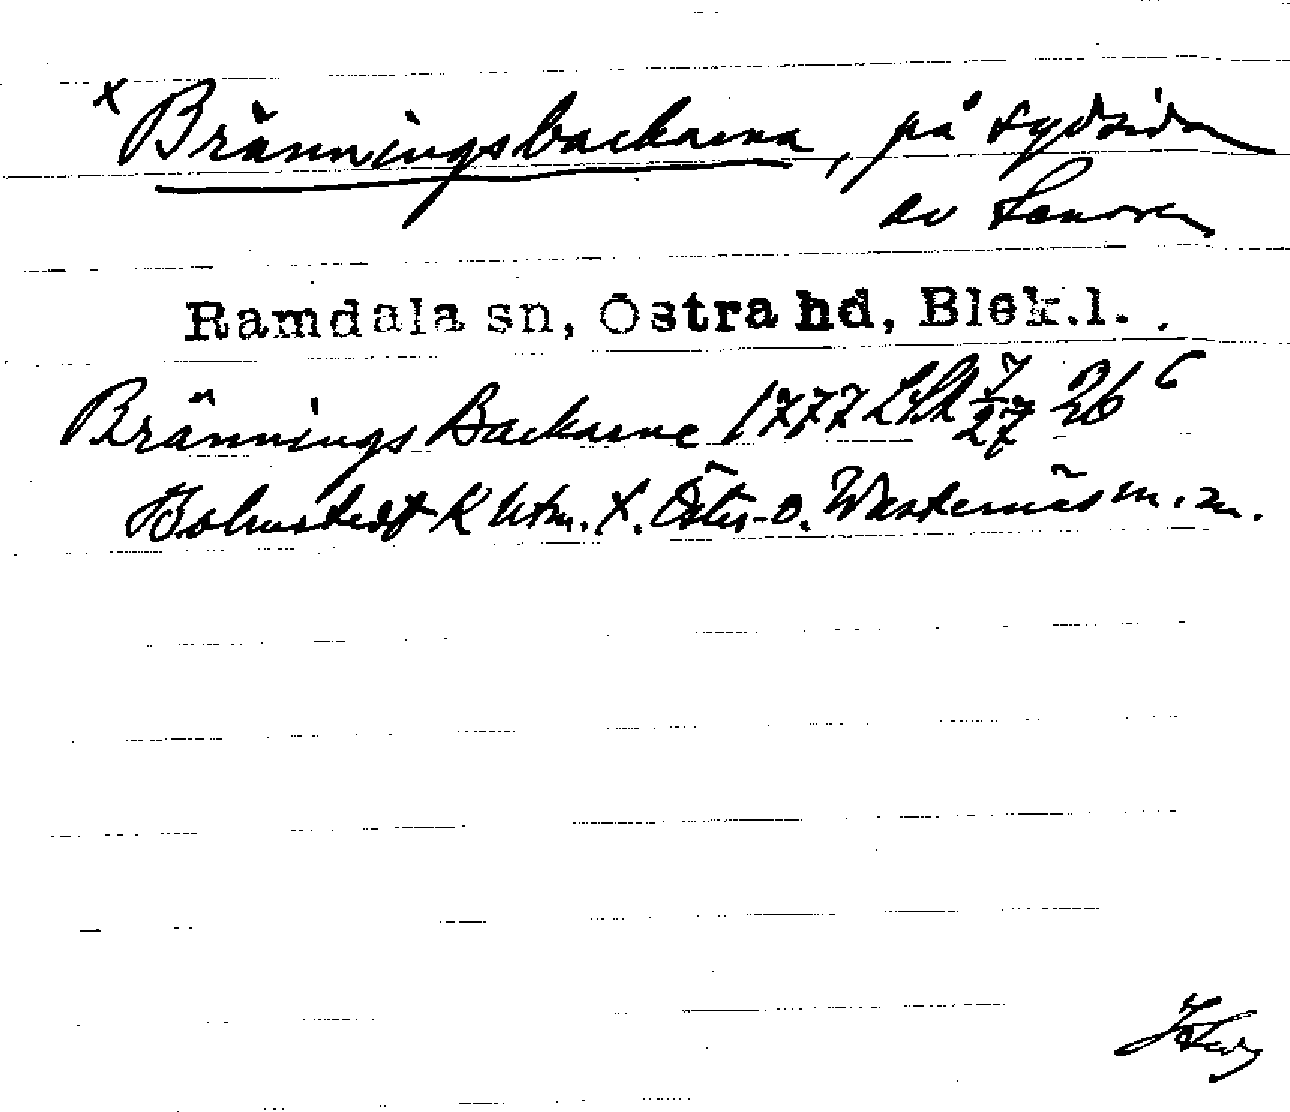 x Bränningsbackarna, på sydsidan
av Senoren
Ramdala sn, Östra hd, Blek.l.
Brännings Backarne 1777 LSA 7/27 26 c
K Utm. X. Öster- o. Westernäs m.m.